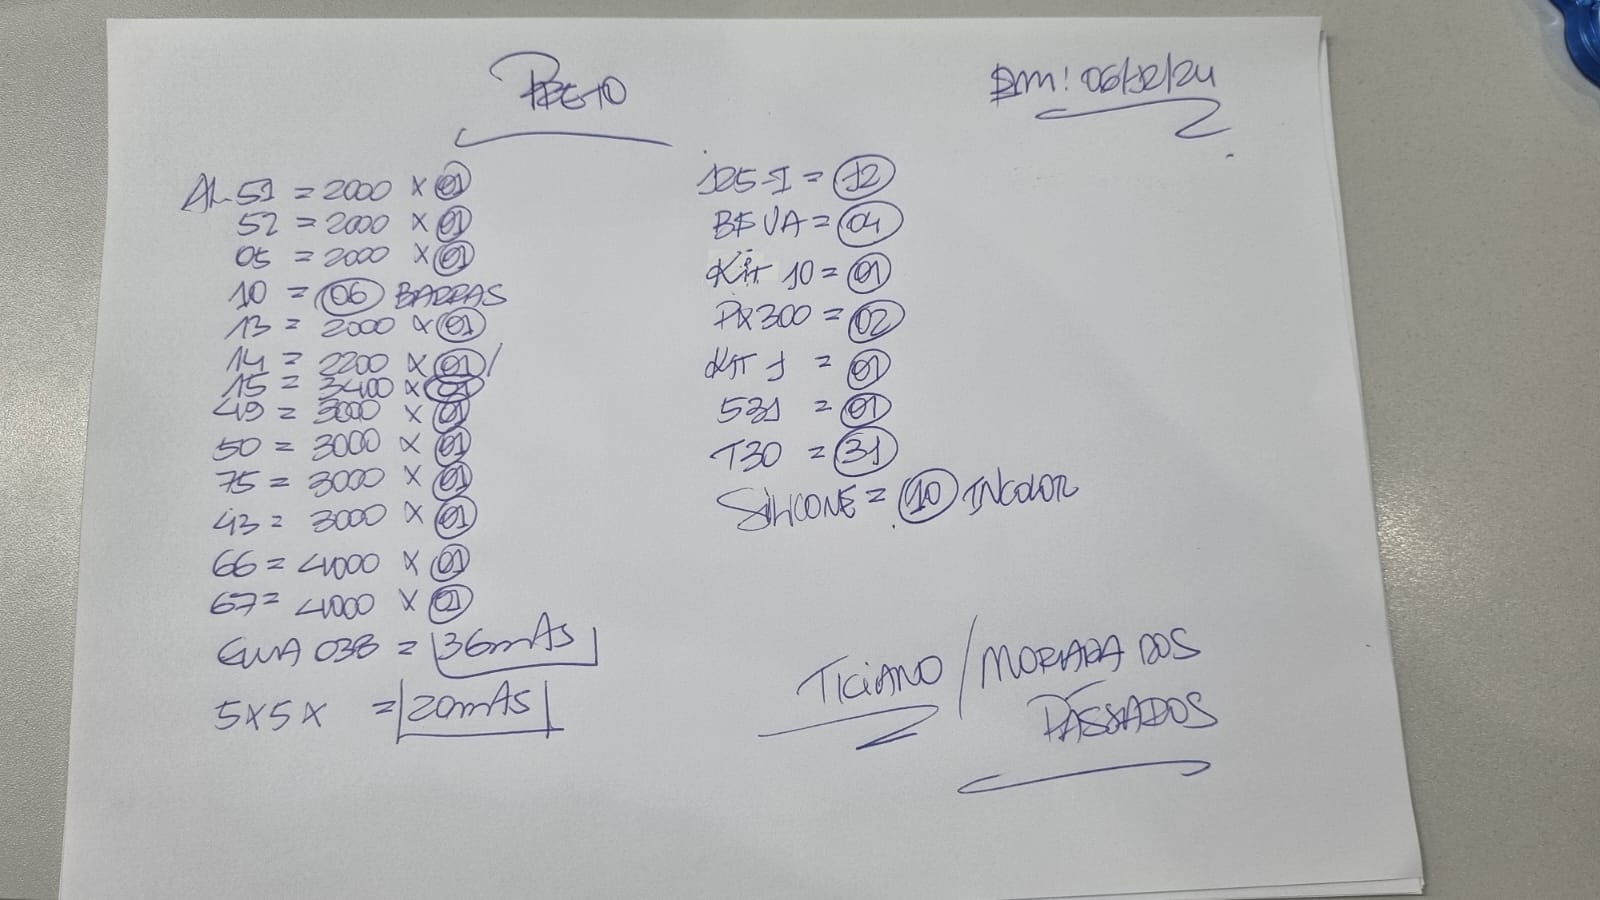 PRETO
EM: 06/12/24
AL 51 = 2000 x 01
52 = 2000 x 01
05 = 2000 x 01
10 = 06 BARRAS
13 = 2000 x 01
14 = 2200 x 01 /
15 = 3400 x 01
49 = 3000 x 01
50 = 3000 x 01
75 = 3000 x 01
43 = 3000 x 01
66 = 4000 x 01
67 = 4000 x 01
GUIA 038 = 36mts
5x5x = 20mts
125-I = 12
VA = 04
Kit 10 = 01
PX300 = 02
Kit 1 = 01
531 = 01
T30 = 31
SILICONE = 10 INCOLOR
TICIANO / MORADA DOS
PÁSSAROS